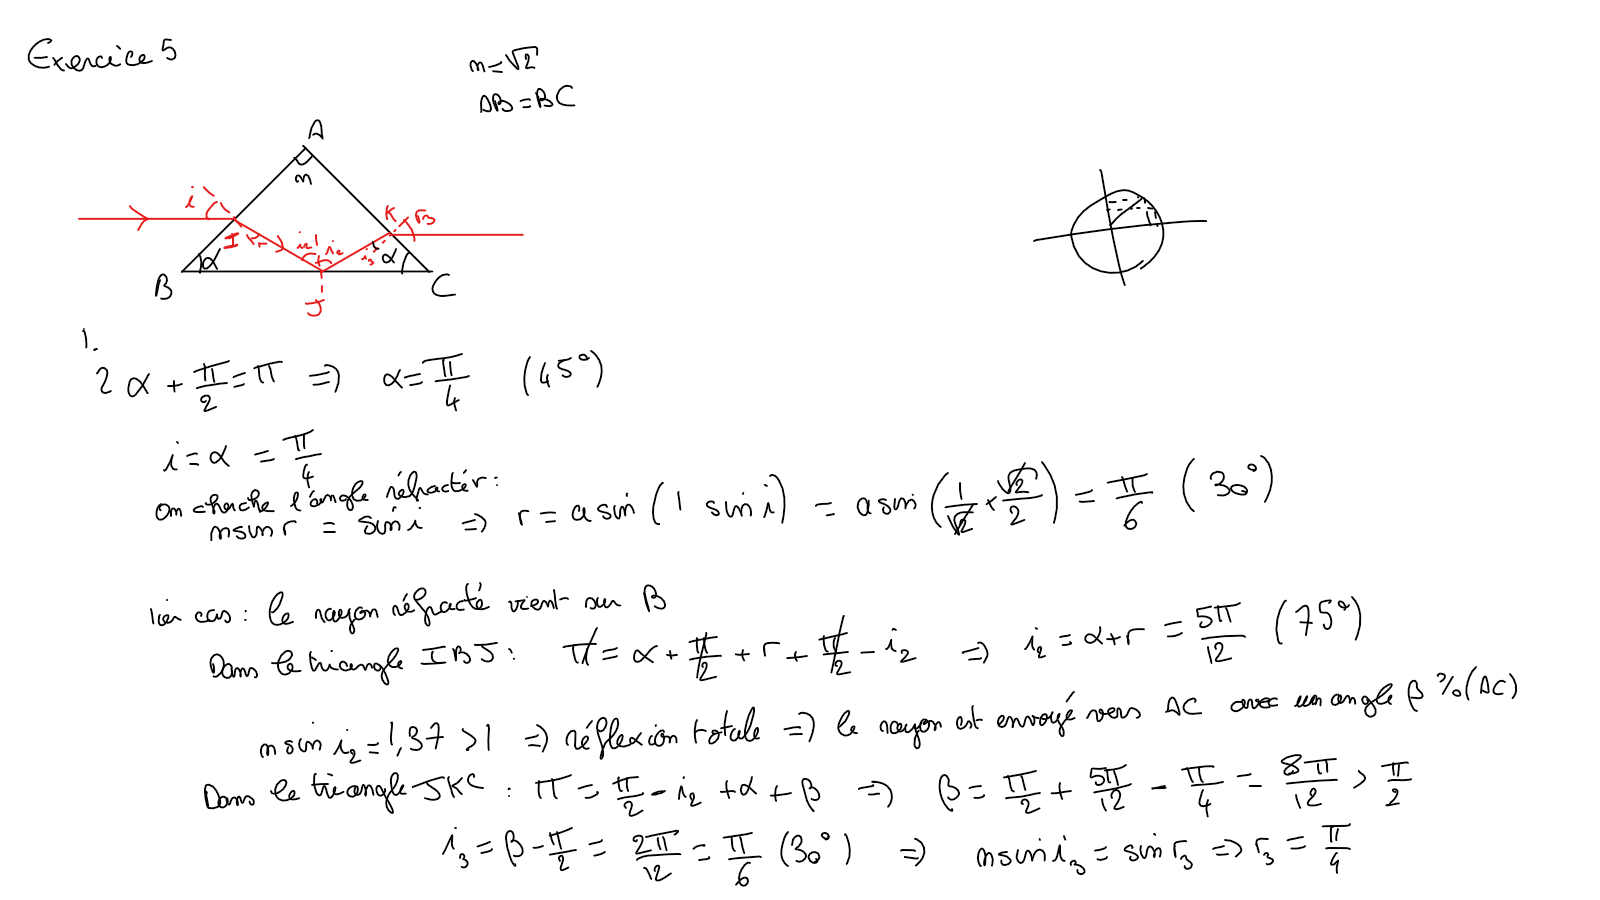 Exercice 5
n=√2
AB=BC
A
n
i
K
r3
I
r
i2
i2
i3
α
α
B
C
J
1.
2α + π/2 = π => α = π/4 (45°)
i = α = π/4
On cherche l'angle réfracter :
n sin r = sin i => r = asin (1 sin i) = asin (1/√2 × √2/2) = π/6 (30°)
1ier cas : le rayon réfracté vient sur B
Dans le triangle IBJ : π = α + π/2 + r + π/2 - i2 => i2 = α+r = 5π/12 (75°)
n sin i2 = 1,37 > 1 => réflexion totale => le rayon est envoyé vers AC avec un angle β %(AC)
Dans le triangle JKC : π = π/2 - i2 + α + β => β = π/2 + 5π/12 - π/4 = 8π/12 > π/2
i3 = β - π/2 = 2π/12 = π/6 (30°) => n sin i3 = sin r3 => r3 = π/4